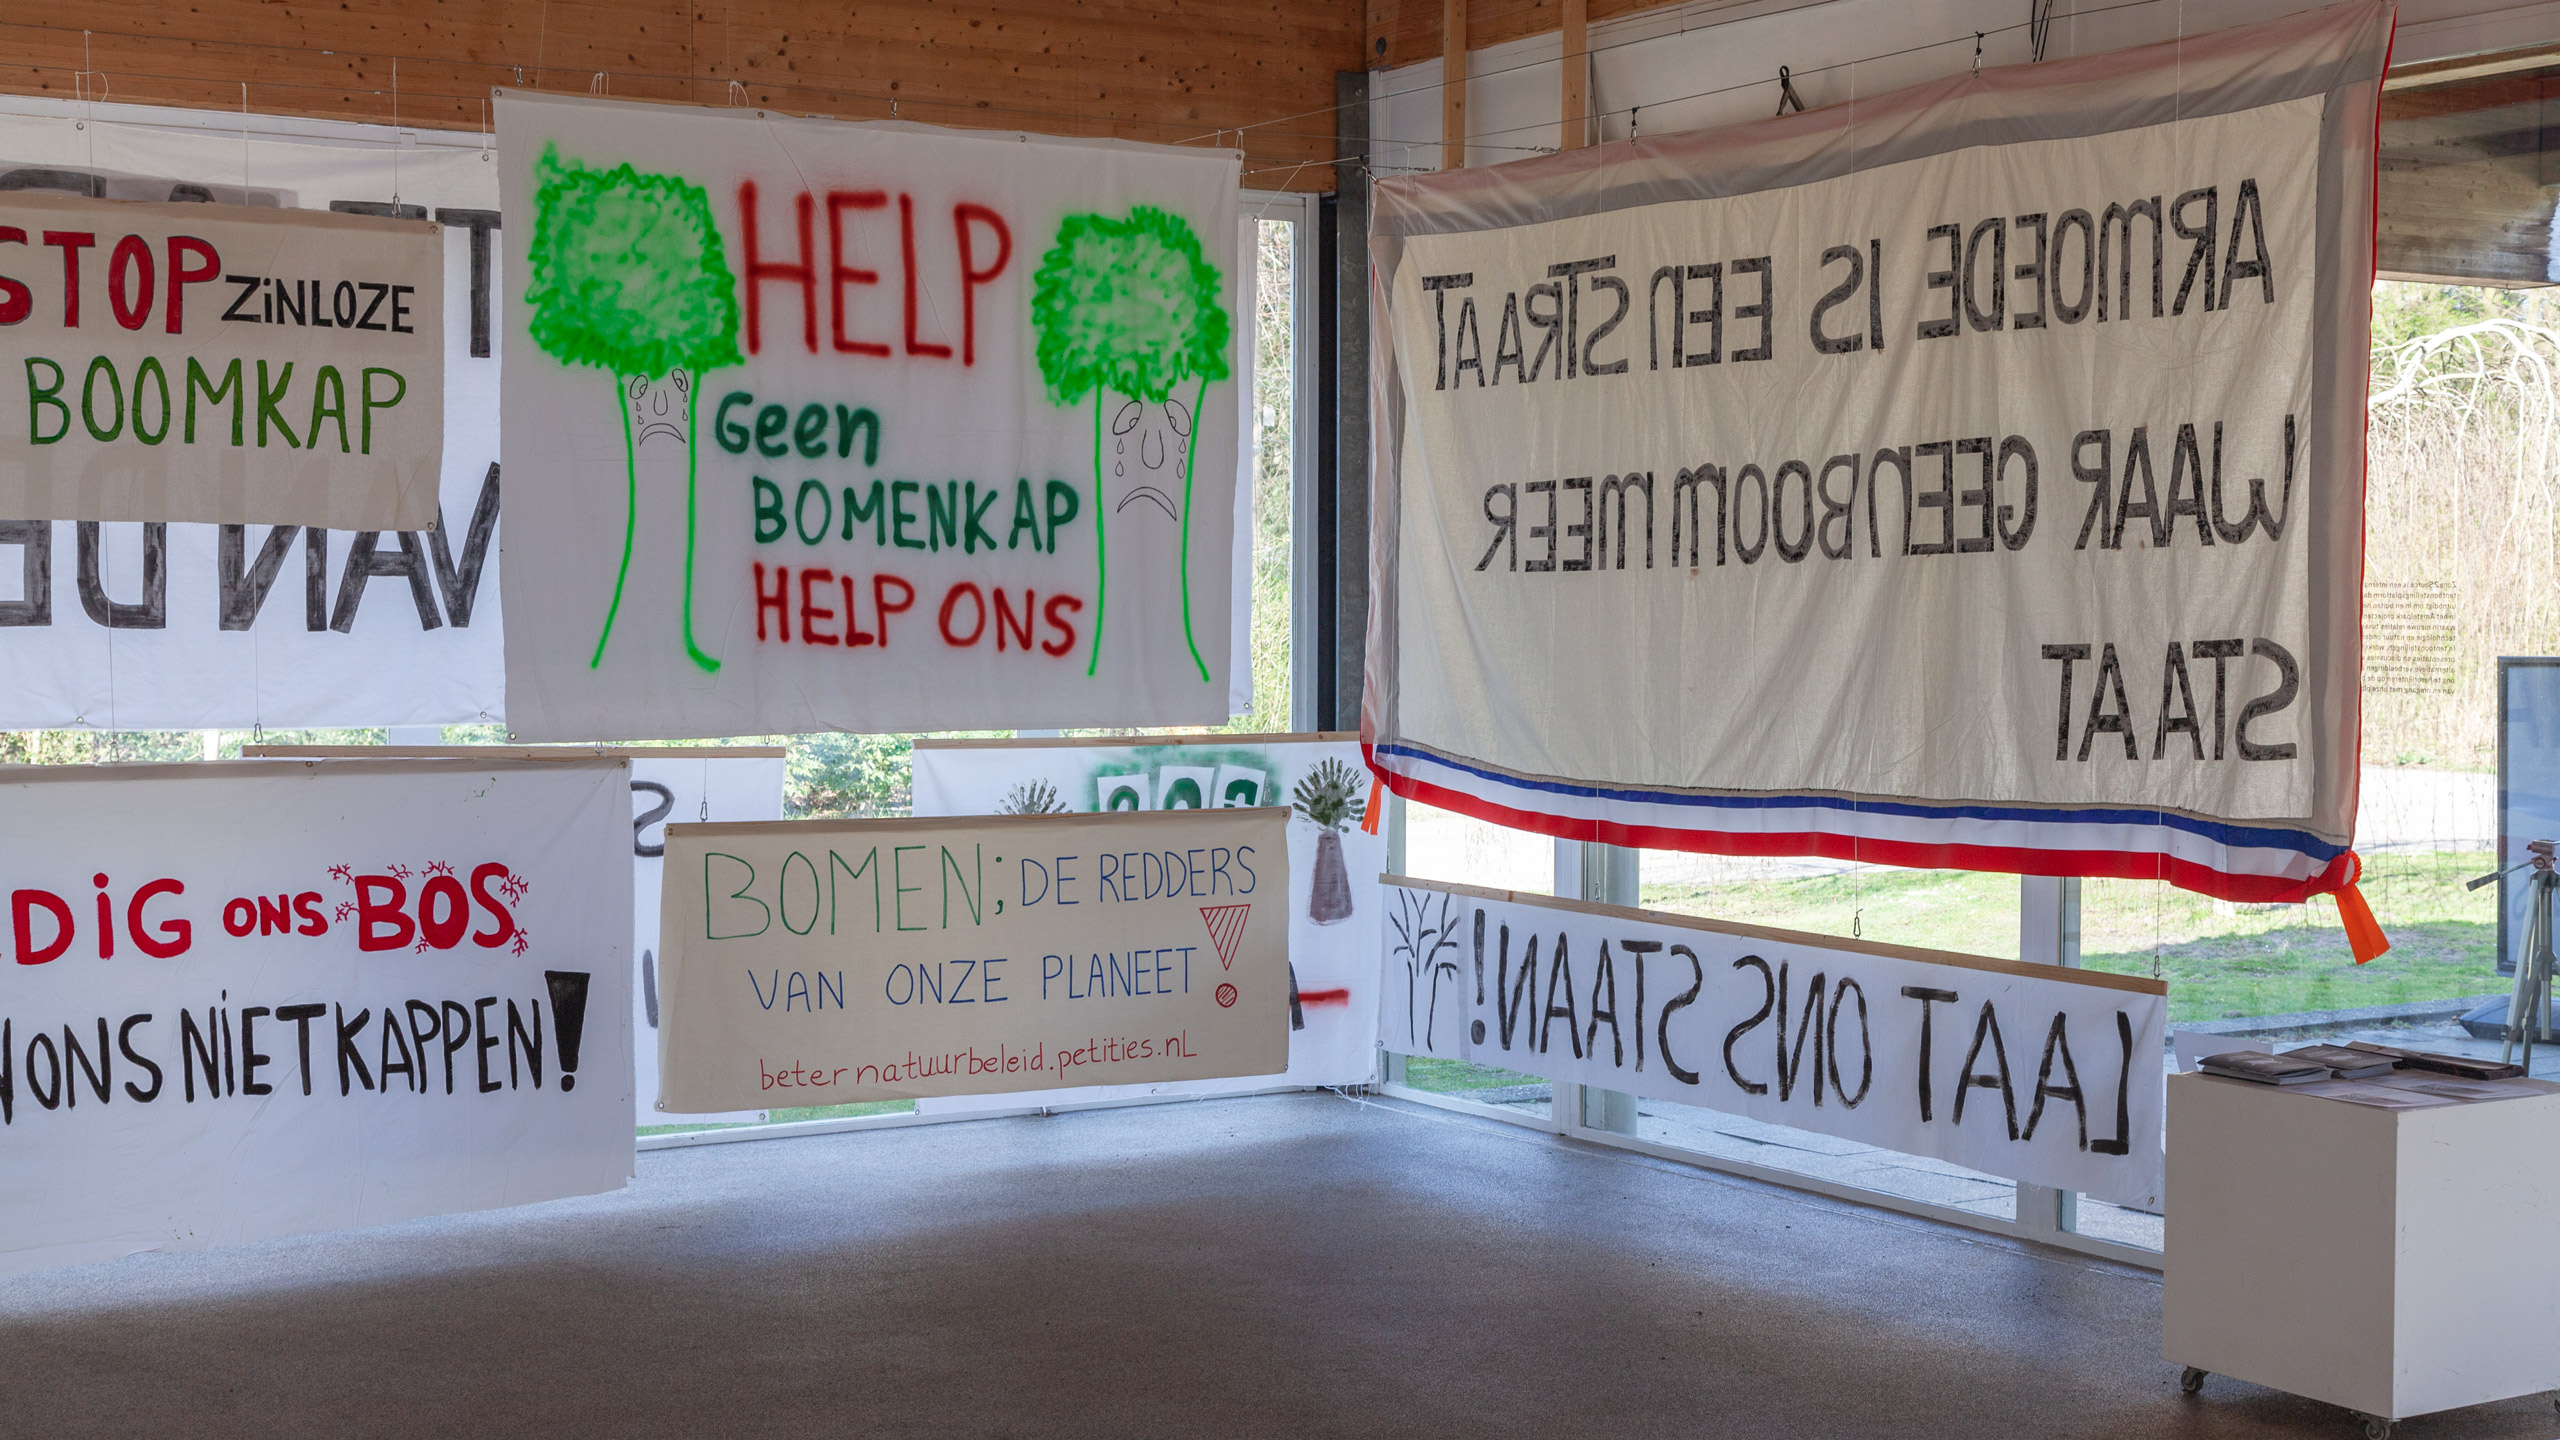 STOP ZiNLOZE
BOOMKAP
VAN DE
HELP
Geen
BOMENKAP
HELP ONS
ARMOEDE IS EEN STRAAT
WAAR GEEN BOOM MEER
STAAT
DiG ONS BOS
ONS NiET KAPPEN!
BOMEN; DE REDDERS
VAN ONZE PLANEET!
beternatuurbeleid.petities.nl
LAAT ONS STAAN!